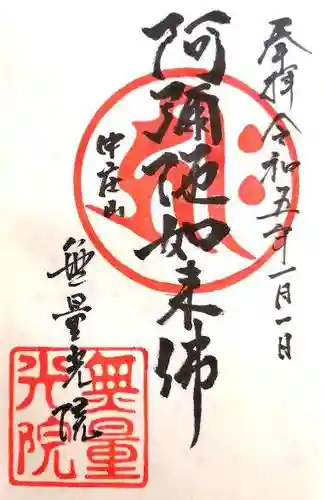 奉拝 令和五年一月一日
阿彌陀如来佛
中荘山
無量光院
無量
光院